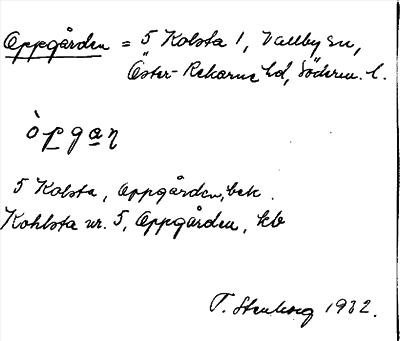 Oppgården = 5 Kolsta 1, Vallby sn,
Öster-Rekarne hd, Söderm. l.
òpgaη
5 Kolsta, Oppgården, bek.
Kohlsta nr. 5, Oppgården, kb
T. Stenberg 1932.